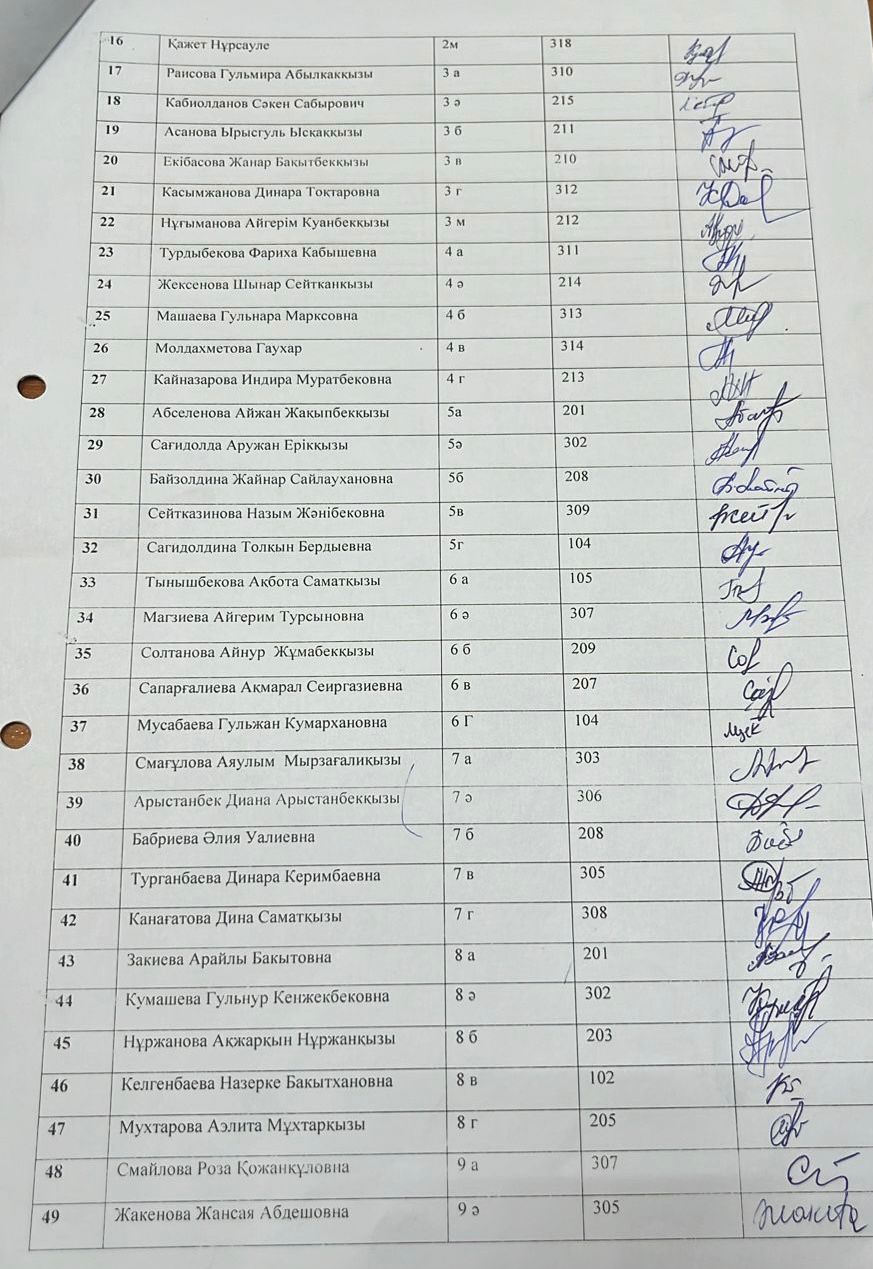 16 Қажет Нұрсауле 2м 318
17 Раисова Гульмира Абылкаққызы 3 а 310
18 Кабиолданов Сәкен Сабырович 3 ә 215
19 Асанова Ырысгуль Ысқаққызы 3 б 211
20 Екібасова Жанар Бақытбекқызы 3 в 210
21 Касымжанова Динара Токтаровна 3 г 312
22 Нұғыманова Айгерім Куанбекқызы 3 м 212
23 Турдыбекова Фариха Кабышевна 4 а 311
24 Жексенова Шынар Сейтканкызы 4 ә 214
25 Машаева Гульнара Марксовна 4 б 313
26 Молдахметова Гаухар 4 в 314
27 Кайназарова Индира Муратбековна 4 г 213
28 Абселенова Айжан Жақыпбекқызы 5а 201
29 Сағидолда Аружан Еріққызы 5ә 302
30 Байзолдина Жайнар Сайлаухановна 5б 208
31 Сейтказинова Назым Жәнібековна 5в 309
32 Сагидолдина Толкын Бердыевна 5г 104
33 Тынышбекова Ақбота Саматқызы 6 а 105
34 Магзиева Айгерим Турсыновна 6 ә 307
35 Солтанова Айнур Жұмабекқызы 6 б 209
36 Сапарғалиева Ақмарал Сеиргазиевна 6 в 207
37 Мусабаева Гульжан Кумархановна 6 Г 104
38 Смағұлова Аяулым Мырзағалиқызы 7 а 303
39 Арыстанбек Диана Арыстанбекқызы 7 ә 306
40 Бабриева Әлия Уалиевна 7 б 208
41 Турганбаева Динара Керимбаевна 7 в 305
42 Канағатова Дина Саматқызы 7 г 308
43 Закиева Арайлы Бакытовна 8 а 201
44 Кумашева Гульнур Кенжекбековна 8 ә 302
45 Нұржанова Ақжарқын Нұржанқызы 8 б 203
46 Келгенбаева Назерке Бакытхановна 8 в 102
47 Мухтарова Аэлита Мұхтарқызы 8 г 205
48 Смайлова Роза Қожанқұловна 9 а 307
49 Жакенова Жансая Абдешовна 9 ә 305